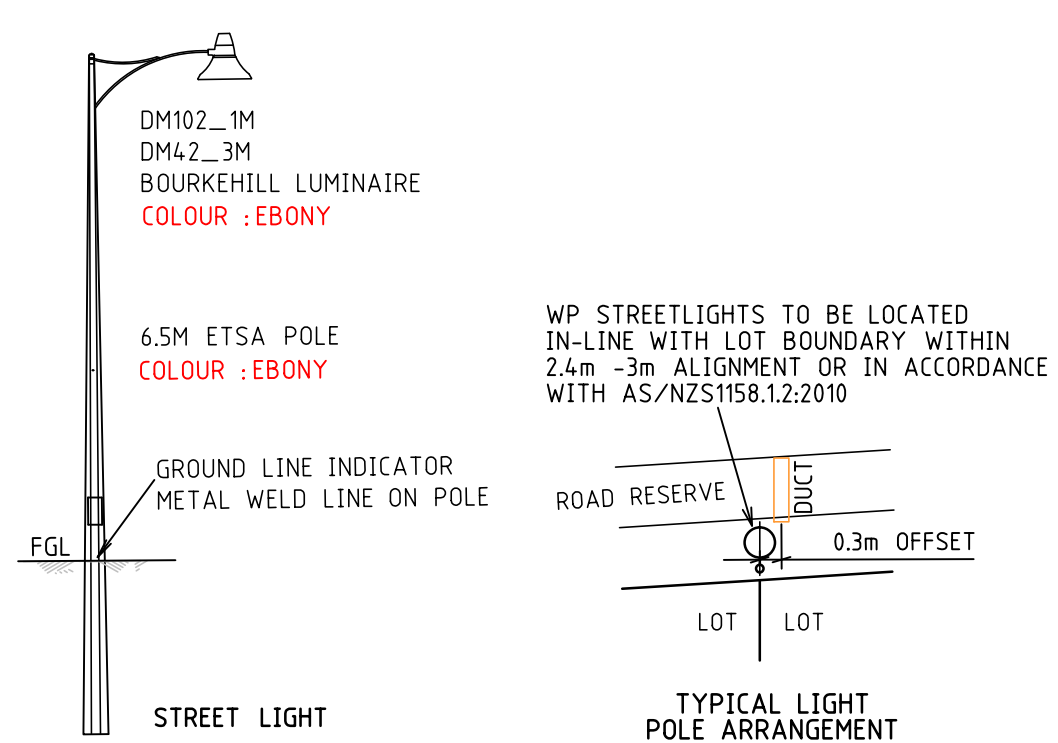 DM102_1M
DM42_3M
BOURKEHILL LUMINAIRE
COLOUR :EBONY
6.5M ETSA POLE
COLOUR :EBONY
GROUND LINE INDICATOR
METAL WELD LINE ON POLE
FGL
STREET LIGHT
WP STREETLIGHTS TO BE LOCATED
IN-LINE WITH LOT BOUNDARY WITHIN
2.4m -3m ALIGNMENT OR IN ACCORDANCE
WITH AS/NZS1158.1.2:2010
ROAD RESERVE
DUCT
0.3m OFFSET
LOT
LOT
TYPICAL LIGHT
POLE ARRANGEMENT